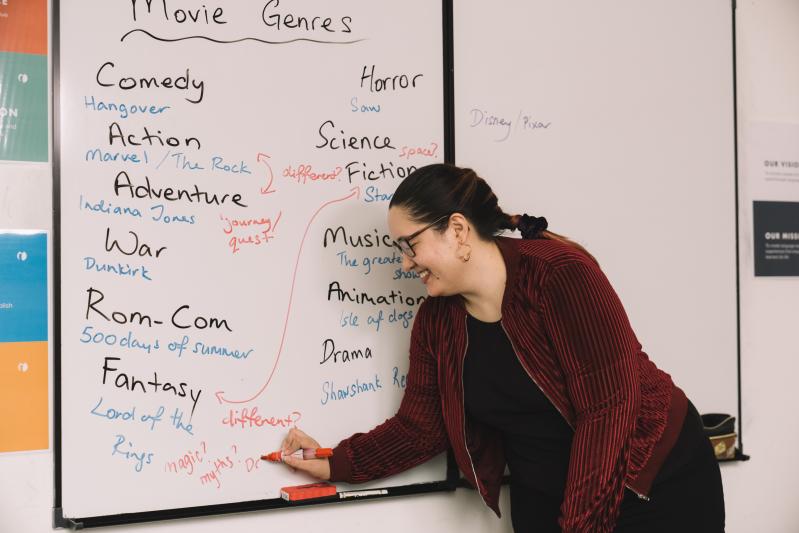 Movie Genres
Comedy
Hangover
Action
Marvel / The Rock
Adventure
Indiana Jones
'journey/
quest'
War
Dunkirk
Rom-Com
500 days of summer
Fantasy
Lord of the
Rings
different?
magic?
myths?
Horror
Saw
Science
Fiction
space?
different?
The greate
show
Animation
Isle of dogs
Drama
Shawshank Re
Disney/Pixar
OUR VISI
OUR MISS